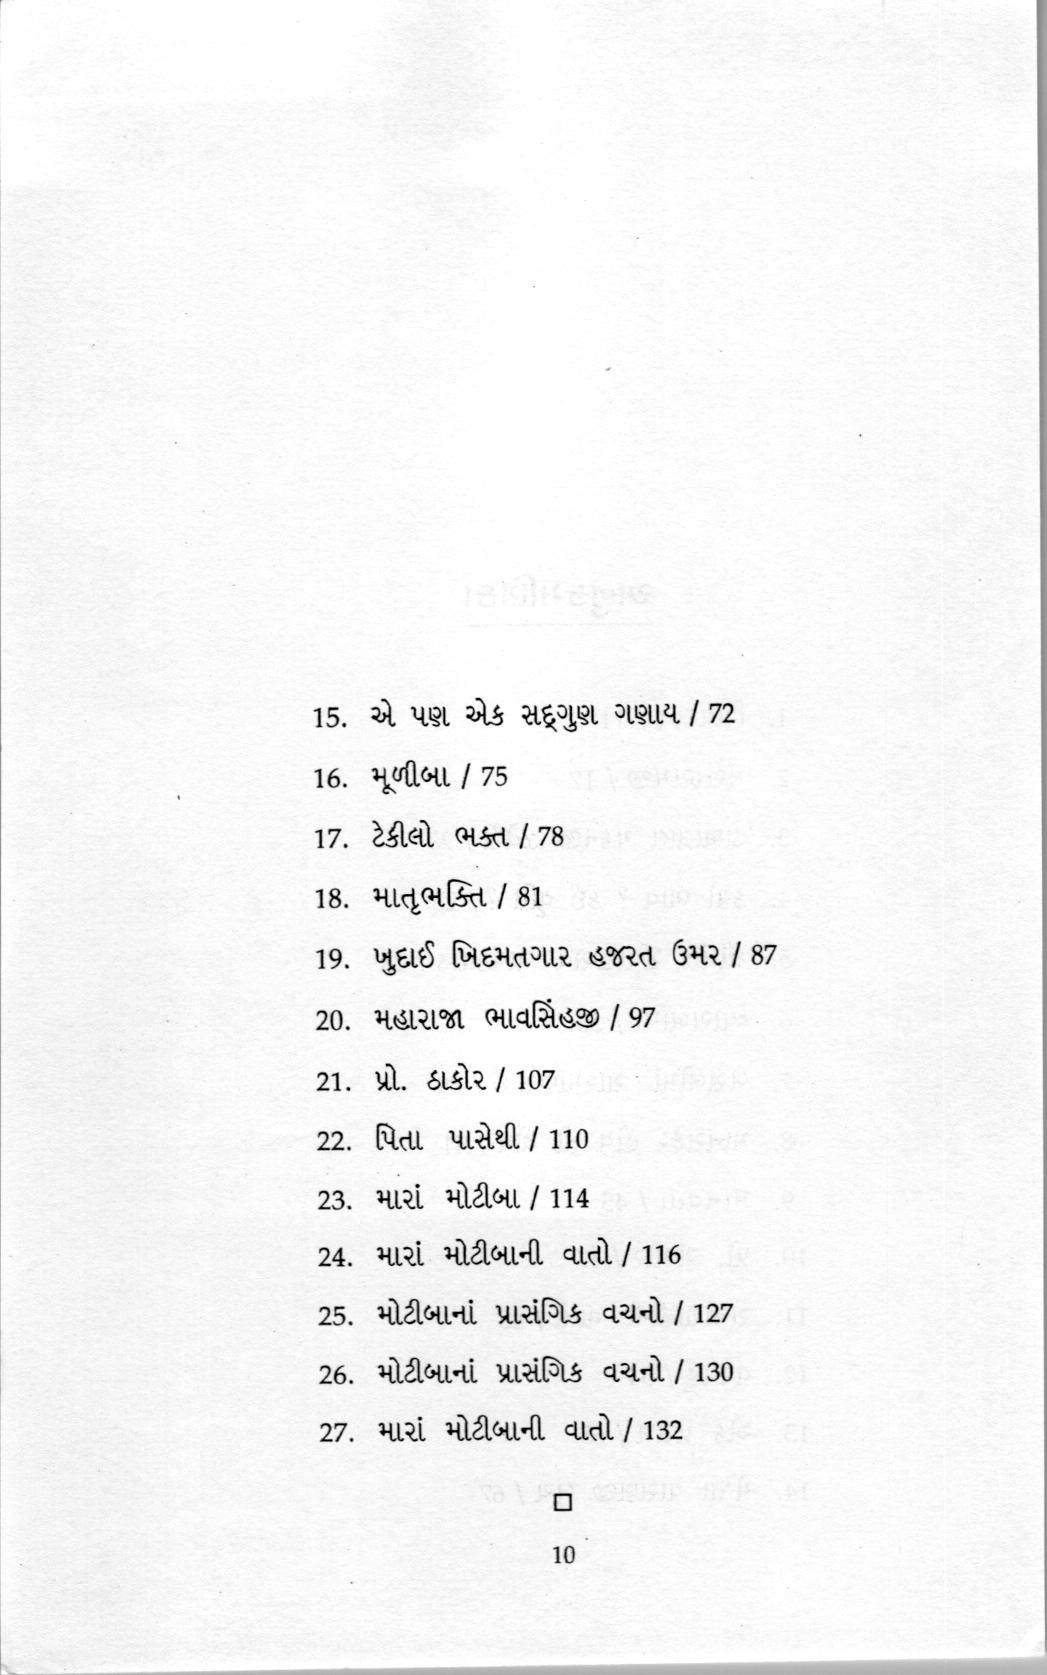 15. એ પણ એક સદ્ગુણ ગણાય / 72
16. મૂળીબા / 75
17. ટેકીલો ભક્ત / 78
18. માતૃભક્તિ / 81
19. ખુદાઈ ખિદમતગાર હજરત ઉમર / 87
20. મહારાજા ભાવસિંહજી / 97
21. પ્રો. ઠાકોર / 107
22. પિતા પાસેથી / 110
23. મારાં મોટીબા / 114
24. મારાં મોટીબાની વાતો / 116
25. મોટીબાનાં પ્રાસંગિક વચનો / 127
26. મોટીબાનાં પ્રાસંગિક વચનો / 130
27. મારાં મોટીબાની વાતો / 132
10